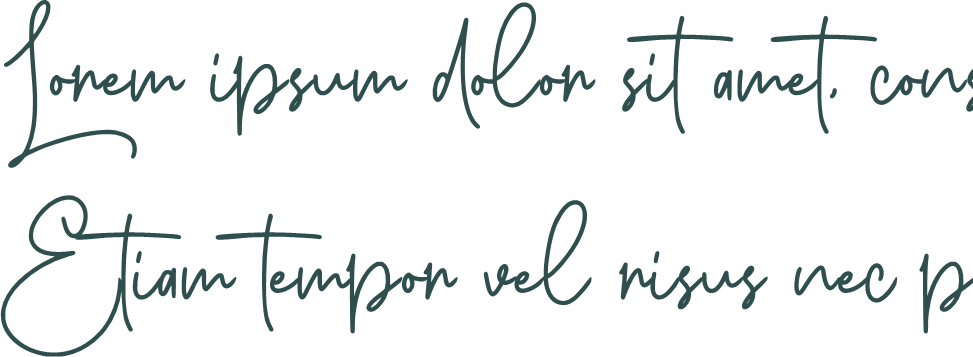 Lorem ipsum dolor sit amet, cons
Etiam tempor vel risus nec p